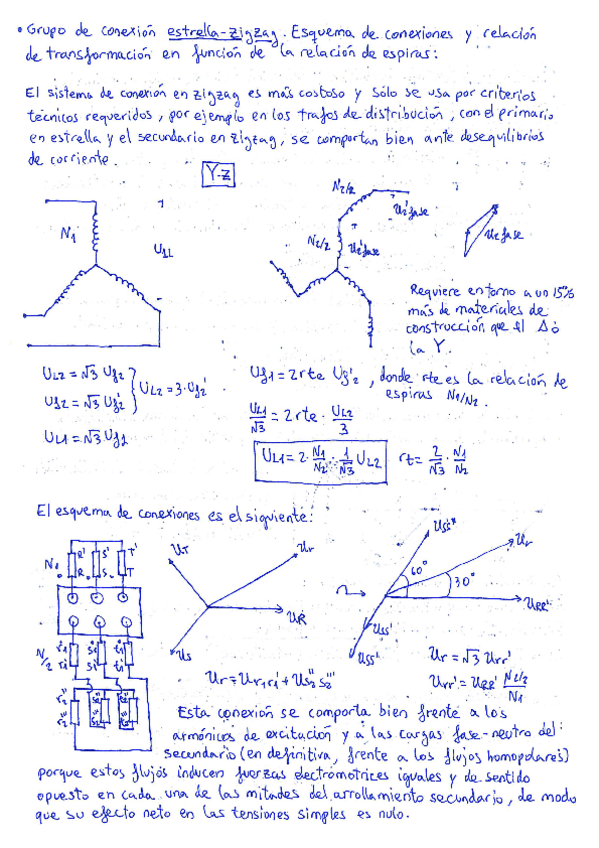 • Grupo de conexión estrella-zigzag. Esquema de conexiones y relación
de transformación en función de la relación de espiras:
El sistema de conexión en zigzag es más costoso y sólo se usa por criterios
técnicos requeridos, por ejemplo en los trafos de distribución, con el primario
en estrella y el secundario en zigzag, se comportan bien ante desequilibrios
de corriente.
Y-z
N1
U1L
N2/2
U2'fase
N2/2
U2'fase
U2fase
Requiere entorno a un 15%
más de materiales de
construcción que el Δ ó
la Y.
UL2 = √3 Uf2
Uf2 = √3 Uf2'
UL2 = 3·Uf2'
UL1 = √3 Uf1
Uf1 = 2 rte Uf2', donde rte es la relación de
espiras N1/N2.
UL1/√3 = 2 rte · UL2/3
UL1 = 2· N1/N2 · 1/√3 UL2
rt = 2/√3 · N1/N2
El esquema de conexiones es el siguiente:
N1
R' S' T'
R S T
N/2
UT
Ur
UR
Us
Ur = Ur1r1' + Us2''s2'''
Uss''
Ur
60°
30°
URR'
Uss'
Uss'
Ur = √3 Urr'
Urr' = URR' N2/2 / N1
Esta conexión se comporta bien frente a los
armónicos de excitación y a las cargas fase-neutro del
secundario (en definitiva, frente a los flujos homopolares)
porque estos flujos inducen fuerzas electromotrices iguales y de sentido
opuesto en cada una de las mitades del arrollamiento secundario, de modo
que su efecto neto en las tensiones simples es nulo.